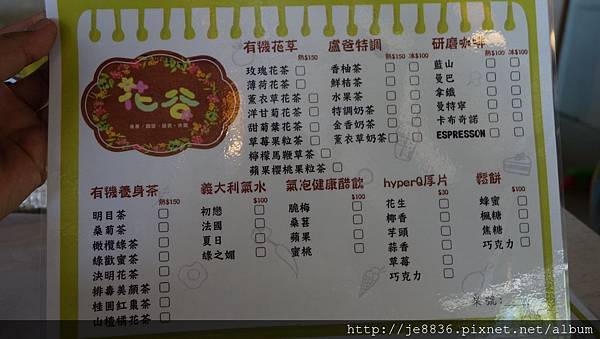 花谷
有機花草
熱$150
玫瑰花茶
薄荷花茶
薰衣草花茶
洋甘菊花茶
甜菊葉花茶
草莓果粒茶
檸檬馬鞭草茶
蘋果櫻桃果粒茶
盧爸特調
熱$100 冰$100
香柚茶
鮮桔茶
水果茶
特調奶茶
金香奶茶
薰衣草奶茶
研磨咖啡
熱$100 冰$100
藍山
曼巴
拿鐵
曼特寧
卡布奇諾
ESPRESSON
有機養身茶
熱$150
明目茶
桑菊茶
橄欖綠茶
綠歡蜜茶
決明花茶
排毒美顏茶
桂圓紅棗茶
山楂橘花茶
義大利氣水
$100
初戀
法國
夏日
綠之媚
氣泡健康醋飲
$100
脆梅
桑葚
蘋果
蜜桃
hyperQ厚片
$30
花生
椰香
芋頭
蒜香
草莓
巧克力
鬆餅
$100
蜂蜜
楓糖
焦糖
巧克力
桌號:
http://je8836.pixnet.net/album